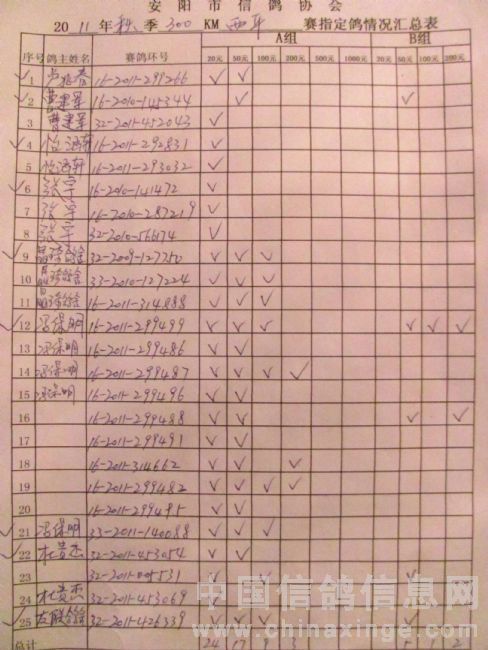 安阳市信鸽协会
2011年秋季300KM西平 赛指定鸽情况汇总表
序号 鸽主姓名 赛鸽环号 A组 B组
20元 50元 100元 200元 500元 1000元 20元 50元 100元 200元
✓1 16-2011-299266 ✓ ✓
✓2 曹建军 16-2010-145344 ✓ ✓
3 曹建军 32-2011-452043 ✓
✓4 16-2011-292831 ✓
5 16-2011-293032 ✓
✓6 张宇 16-2010-141472 ✓
7 张宇 16-2010-287219 ✓
8 张宇 32-2010-566174 ✓
✓9 32-2009-127750 ✓ ✓ ✓
10 33-2010-127224 ✓ ✓ ✓
11 16-2011-314888 ✓ ✓ ✓
✓12 冯保明 16-2011-299499 ✓ ✓ ✓ ✓ ✓ ✓
13 冯保明 16-2011-299486 ✓ ✓
✓14 冯保明 16-2011-299487 ✓ ✓ ✓ ✓
✓15 冯保明 16-2011-299496 ✓ ✓
16 16-2011-299488 ✓ ✓ ✓ ✓
17 16-2011-299491 ✓ ✓
18 16-2011-314662 ✓ ✓ ✓
19 16-2011-299482 ✓ ✓ ✓ ✓
20 16-2011-299495 ✓ ✓
✓21 冯保明 33-2011-140088 ✓ ✓ ✓
✓22 杜贵杰 32-2011-453054 ✓ ✓
23
24 杜贵杰 32-2011-453069
✓25 32-2011-426339 ✓ ✓
总计 24 17 9 3 5 1 2
中国信鸽信息网
www.chinaxinge.com